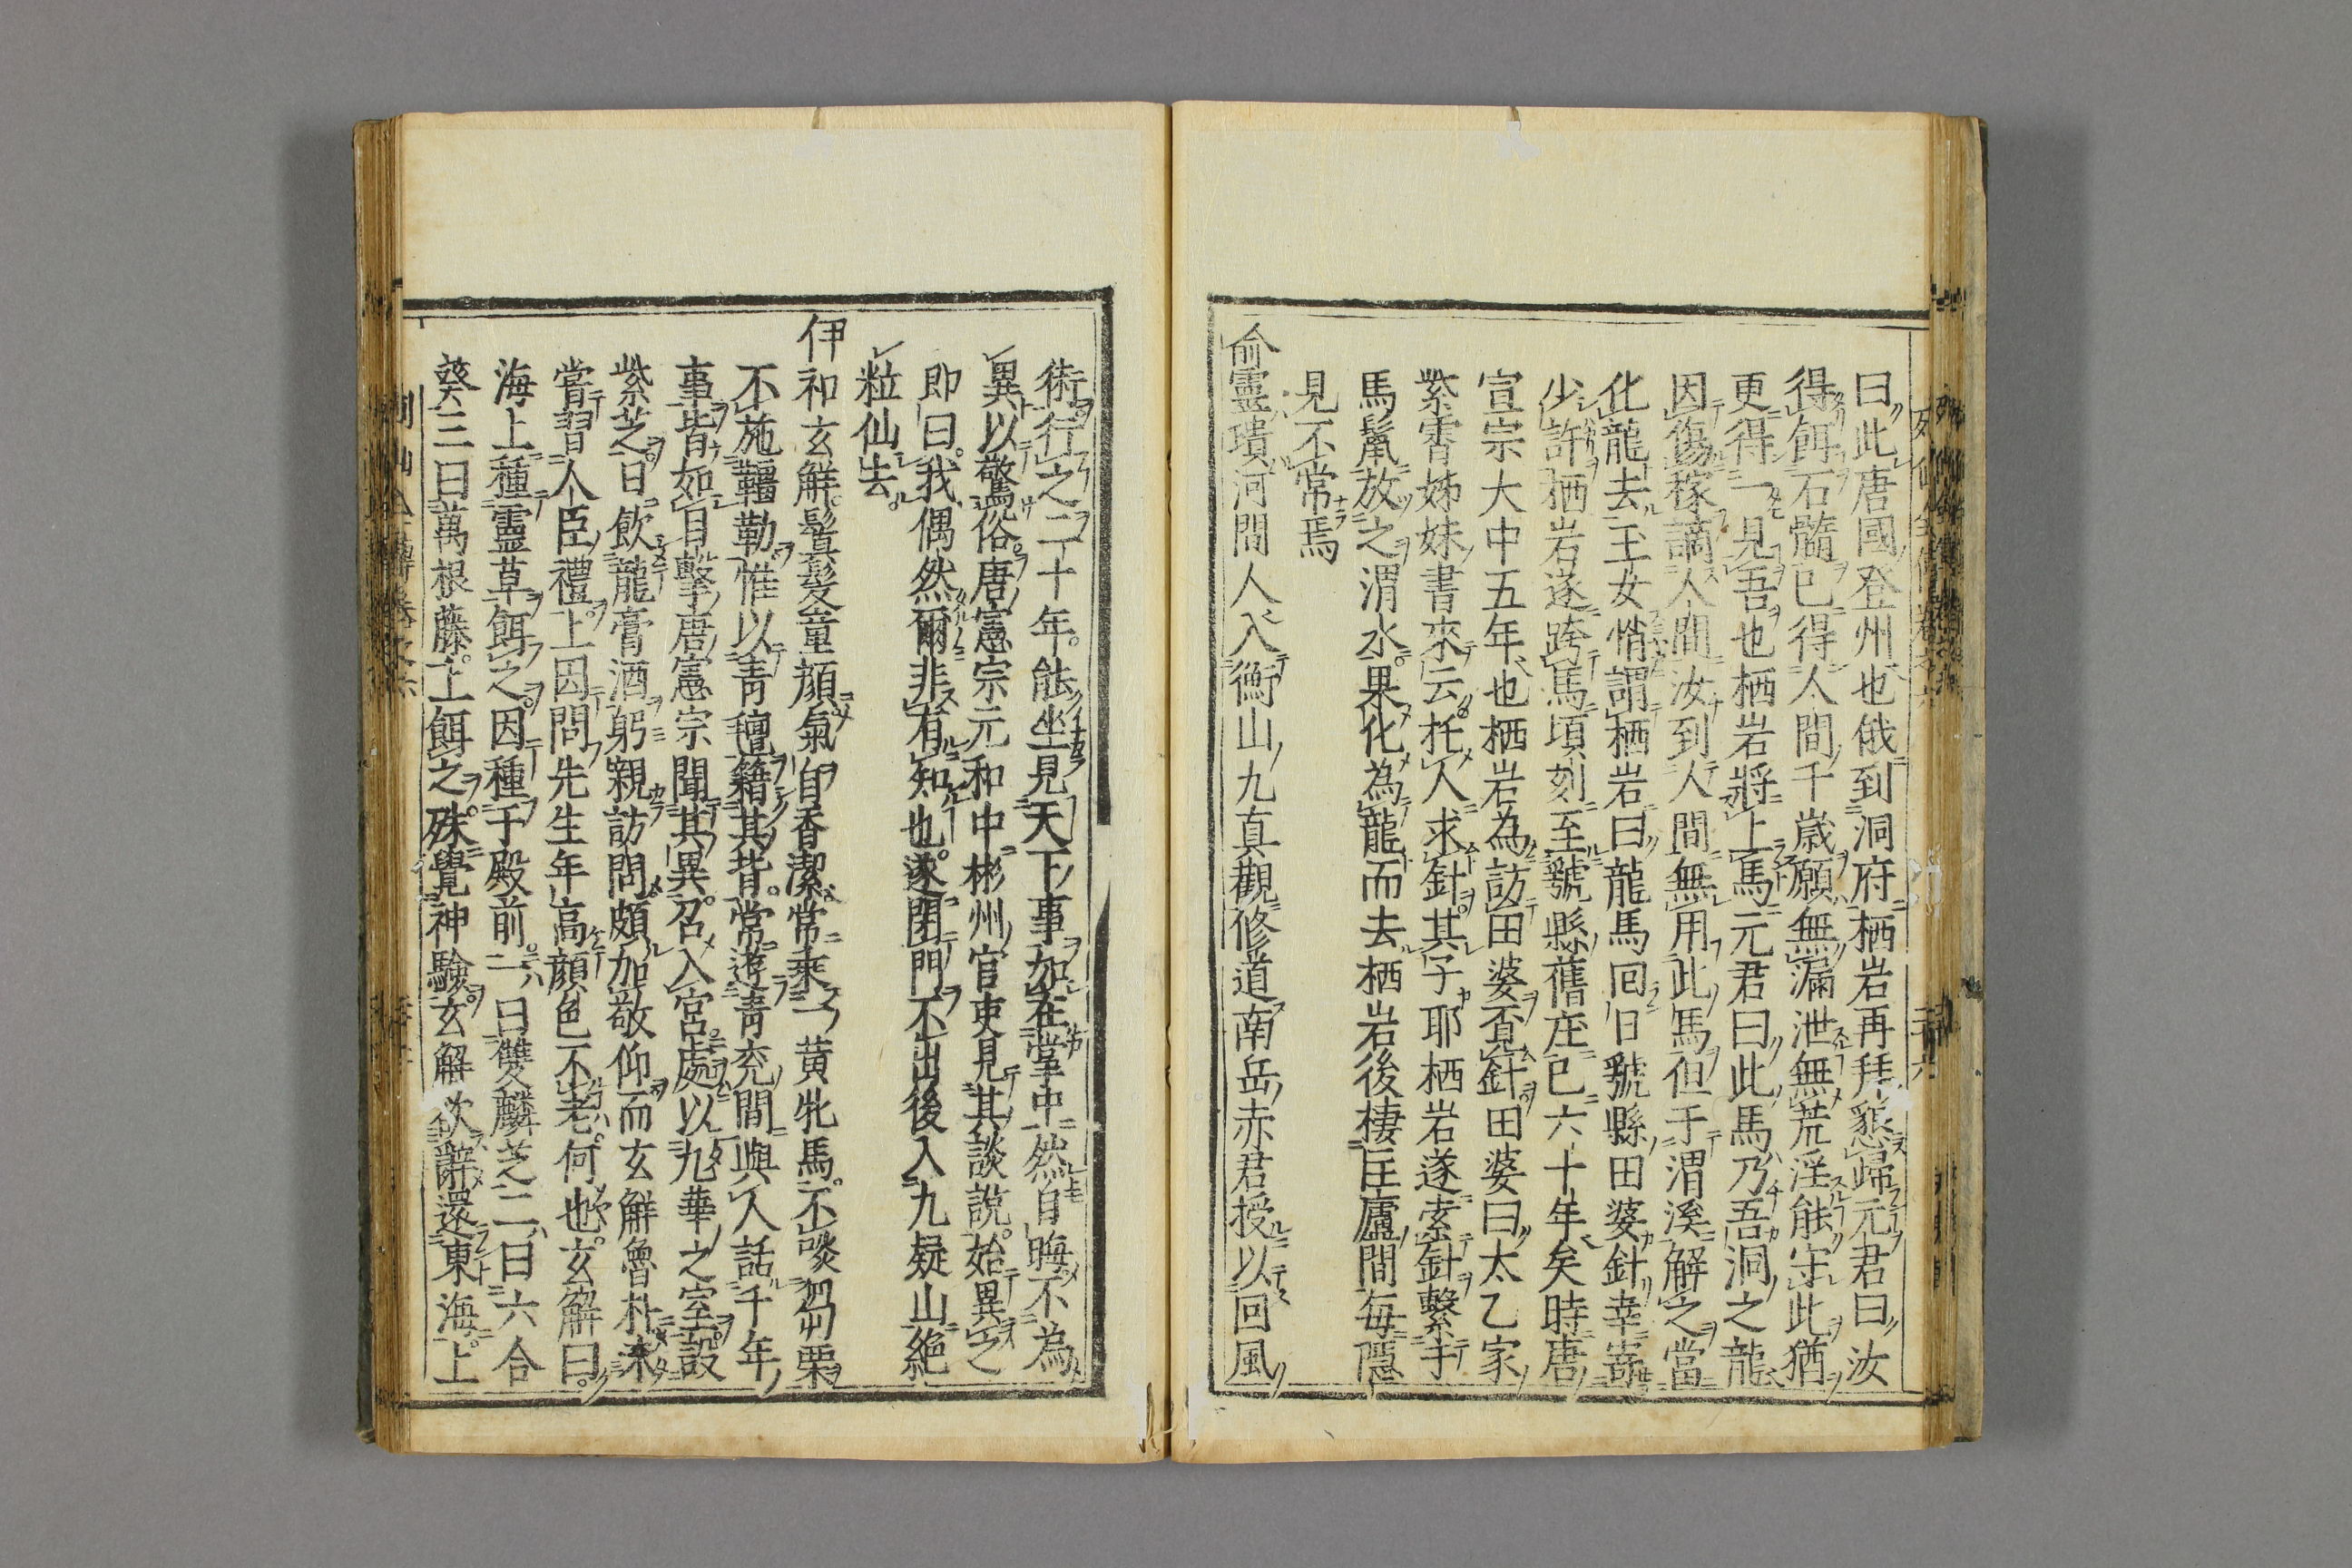 曰此唐國登州也俄到洞府栖岩再拜懇歸元君曰汝
得餌石髓已得人間千歲願無漏泄無荒淫能守此猶
更得一見吾也栖岩將上馬元君曰此馬乃吾洞之龍
因傷稼謫人間汝到人間無用此馬但于渭溪解之當
化龍去玉女悄謂栖岩曰龍馬回日虢縣田婆針幸寄
少許栖岩遂跨馬頃刻至虢縣舊庄已六十年矣時唐
宣宗大中五年也栖岩為訪田婆覔針田婆曰太乙家
紫霄姊妹書來云托人求針其子耶栖岩遂索針繫于
馬鬣放之渭水果化為龍而去栖岩後棲匡廬間每隱
見不常焉
俞靈璝河間人入衡山九真觀修道南岳赤君授以回風
術行之二十年能坐見天下事如在掌中然自晦不為
異以驚俗唐憲宗元和中彬州官吏見其談說始異之
即曰我偶然爾非有知也遂閉門不出後入九疑山絶
粒仙去
伊祁玄解鬒髮童顏氣自香潔常乘一黃牝馬不啖芻粟
不施韁勒惟以青氊籍其背常遊青兗間與人話千年
事皆如目擊唐憲宗聞其異召入宮處以九華之室設
紫芝日飲龍膏酒躬親訪問頗加敬仰而玄解魯朴未
嘗習人臣禮上因問先生年高顏色不老何也玄解曰
海上種靈草餌之因種于殿前一曰雙麟芝二曰六合
葵三曰萬根藤上餌之殊覺神驗玄解欲辭還東海上